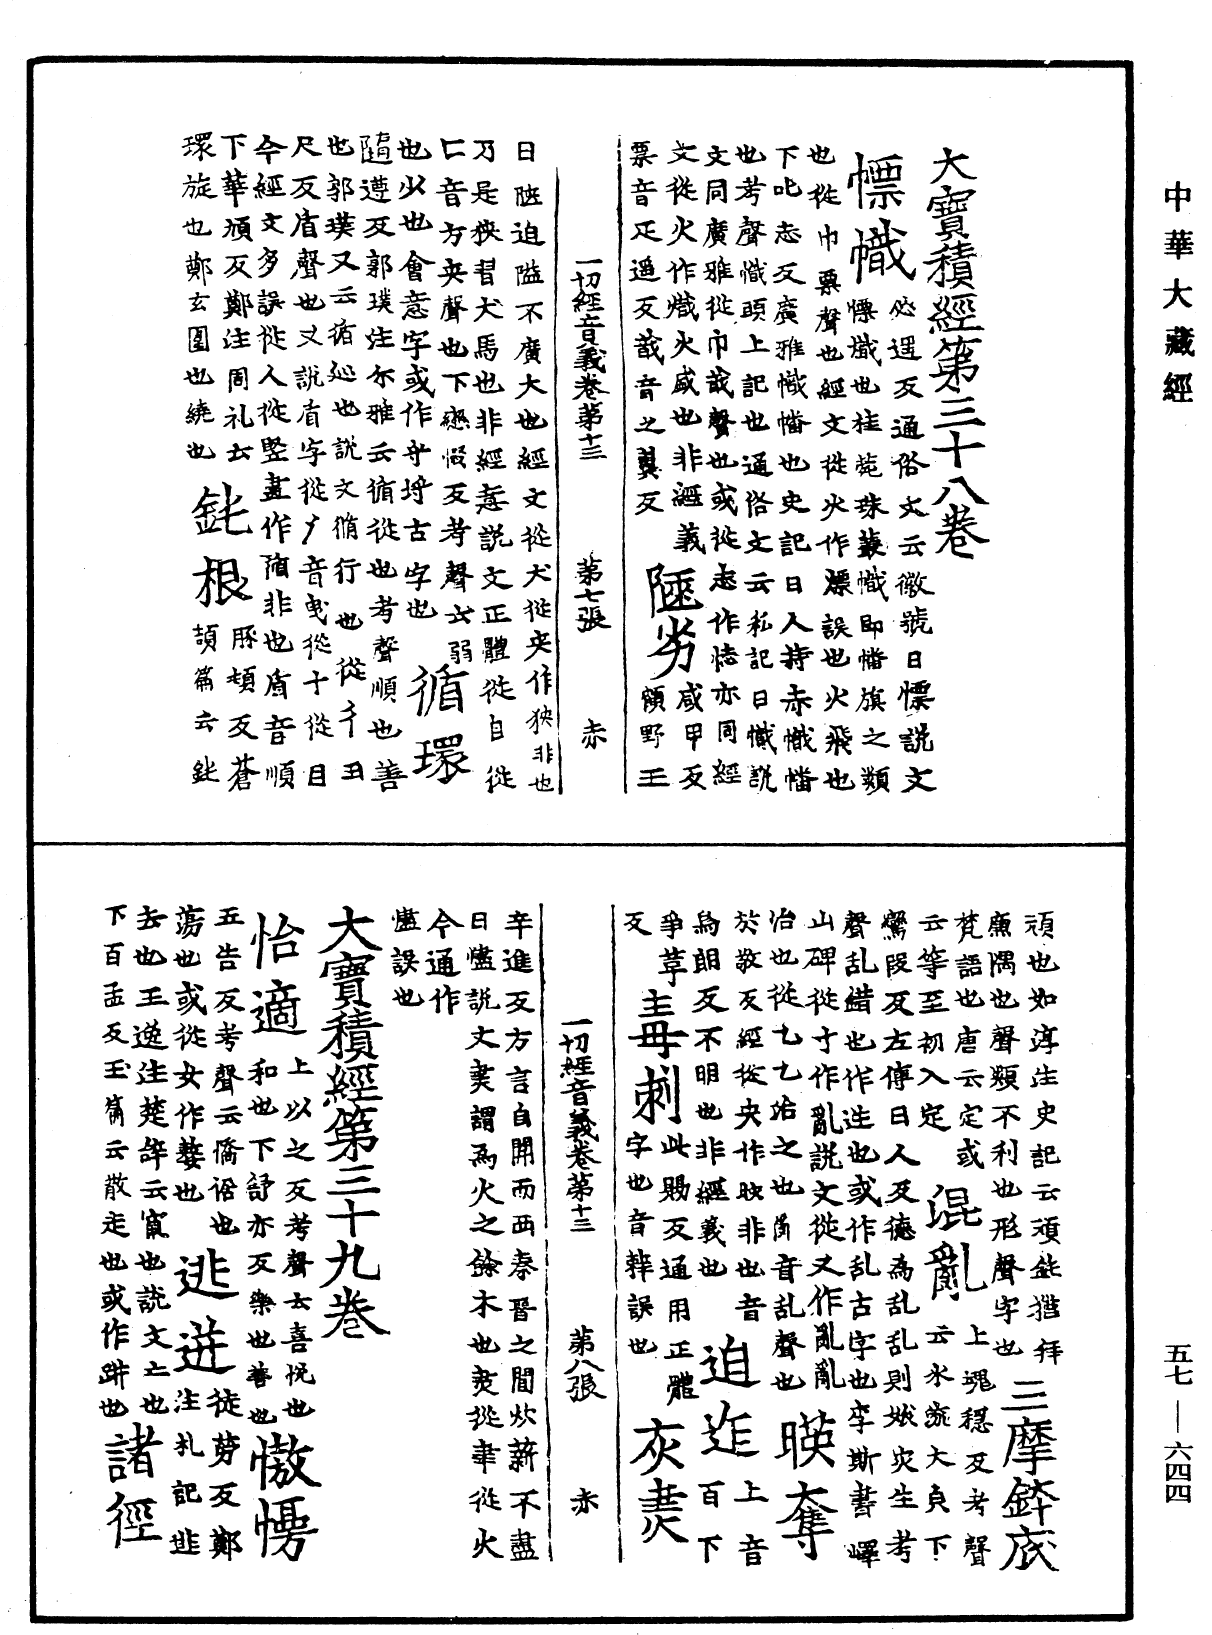 中華大藏經
大寶積經第三十八卷
慓幟 必遥反通俗文云徽號日慓說文
慓幟也桂苑珠叢幟即幡旗之類
也從巾票聲也經文從火作熛誤也火飛也
下叱志反廣雅幟幡也史記日人持赤幟幡
也考聲幟頭上記也通俗文云私記日幟説
文同廣雅從巾戠聲也或從志作㤅亦同經
文從火作熾火盛也非經義
票音疋遥反戠音之翼反
陿劣 咸甲反顧野王
一切經音義卷第十三 第七張 赤
日陿迫隘不廣大也經文從犬從夾作狹非也
乃是狹習犬馬也非經意説文正體從自從
匚音方夾聲也下戀惙反考聲云弱
也少也會意字或作㝵埒古字也
循環
隨遵反郭璞注尒雅云循從也考聲順也善
也郭璞又云循㳂也說文循行也從彳丑
尺反盾聲也又說盾字從𠂆音曳從十從目
今經文多誤從人從竪畫作㣫非也盾音順
下華頑反鄭注周礼云
環旋也鄭玄圍也繞也
鈍根 豚頓反蒼
頡篇云鈍
頑也如淳注史記云頑鈍猶拜
廉隅也聲類不利也形聲字也
三摩鉾底
梵語也唐云定或
云等至初入定
混亂 上魂穩反考聲
云水流大皃下
鸞段反左傳日人反德為乱乱則娥灾生考
聲乱錯也作迬也或作乱古字也李斯書嶧
山碑從寸作亂説文從又作亂亂
治也從乙乙治之也𤔔音乱聲也
暎奪 上音
於敬反經從央作映非也音
烏朗反不明也非經義也
迫迮 百下
爭草
反
毒刺 此賜反通用正體
字也音辢誤也
灰燼
一切經音義卷第十三 第八張 赤
辛進反方言自開而西秦晉之間炊薪不盡
日燼説文㶳謂爲火之餘木也㶳從聿從火
今通作
燼誤也
大寶積經第三十九卷
怡適 上以之反考聲云喜悅也
和也下舒亦反樂也善也
憿慢
五告反考聲云憍俗也
蕩也或從女作嫯也
逃逬 徒勞反鄭
注札記逃
去也王逸注楚辞云竄也説文亡也
下百孟反玉篇云散走也或作跰也
諸徑
五七 — 六四四